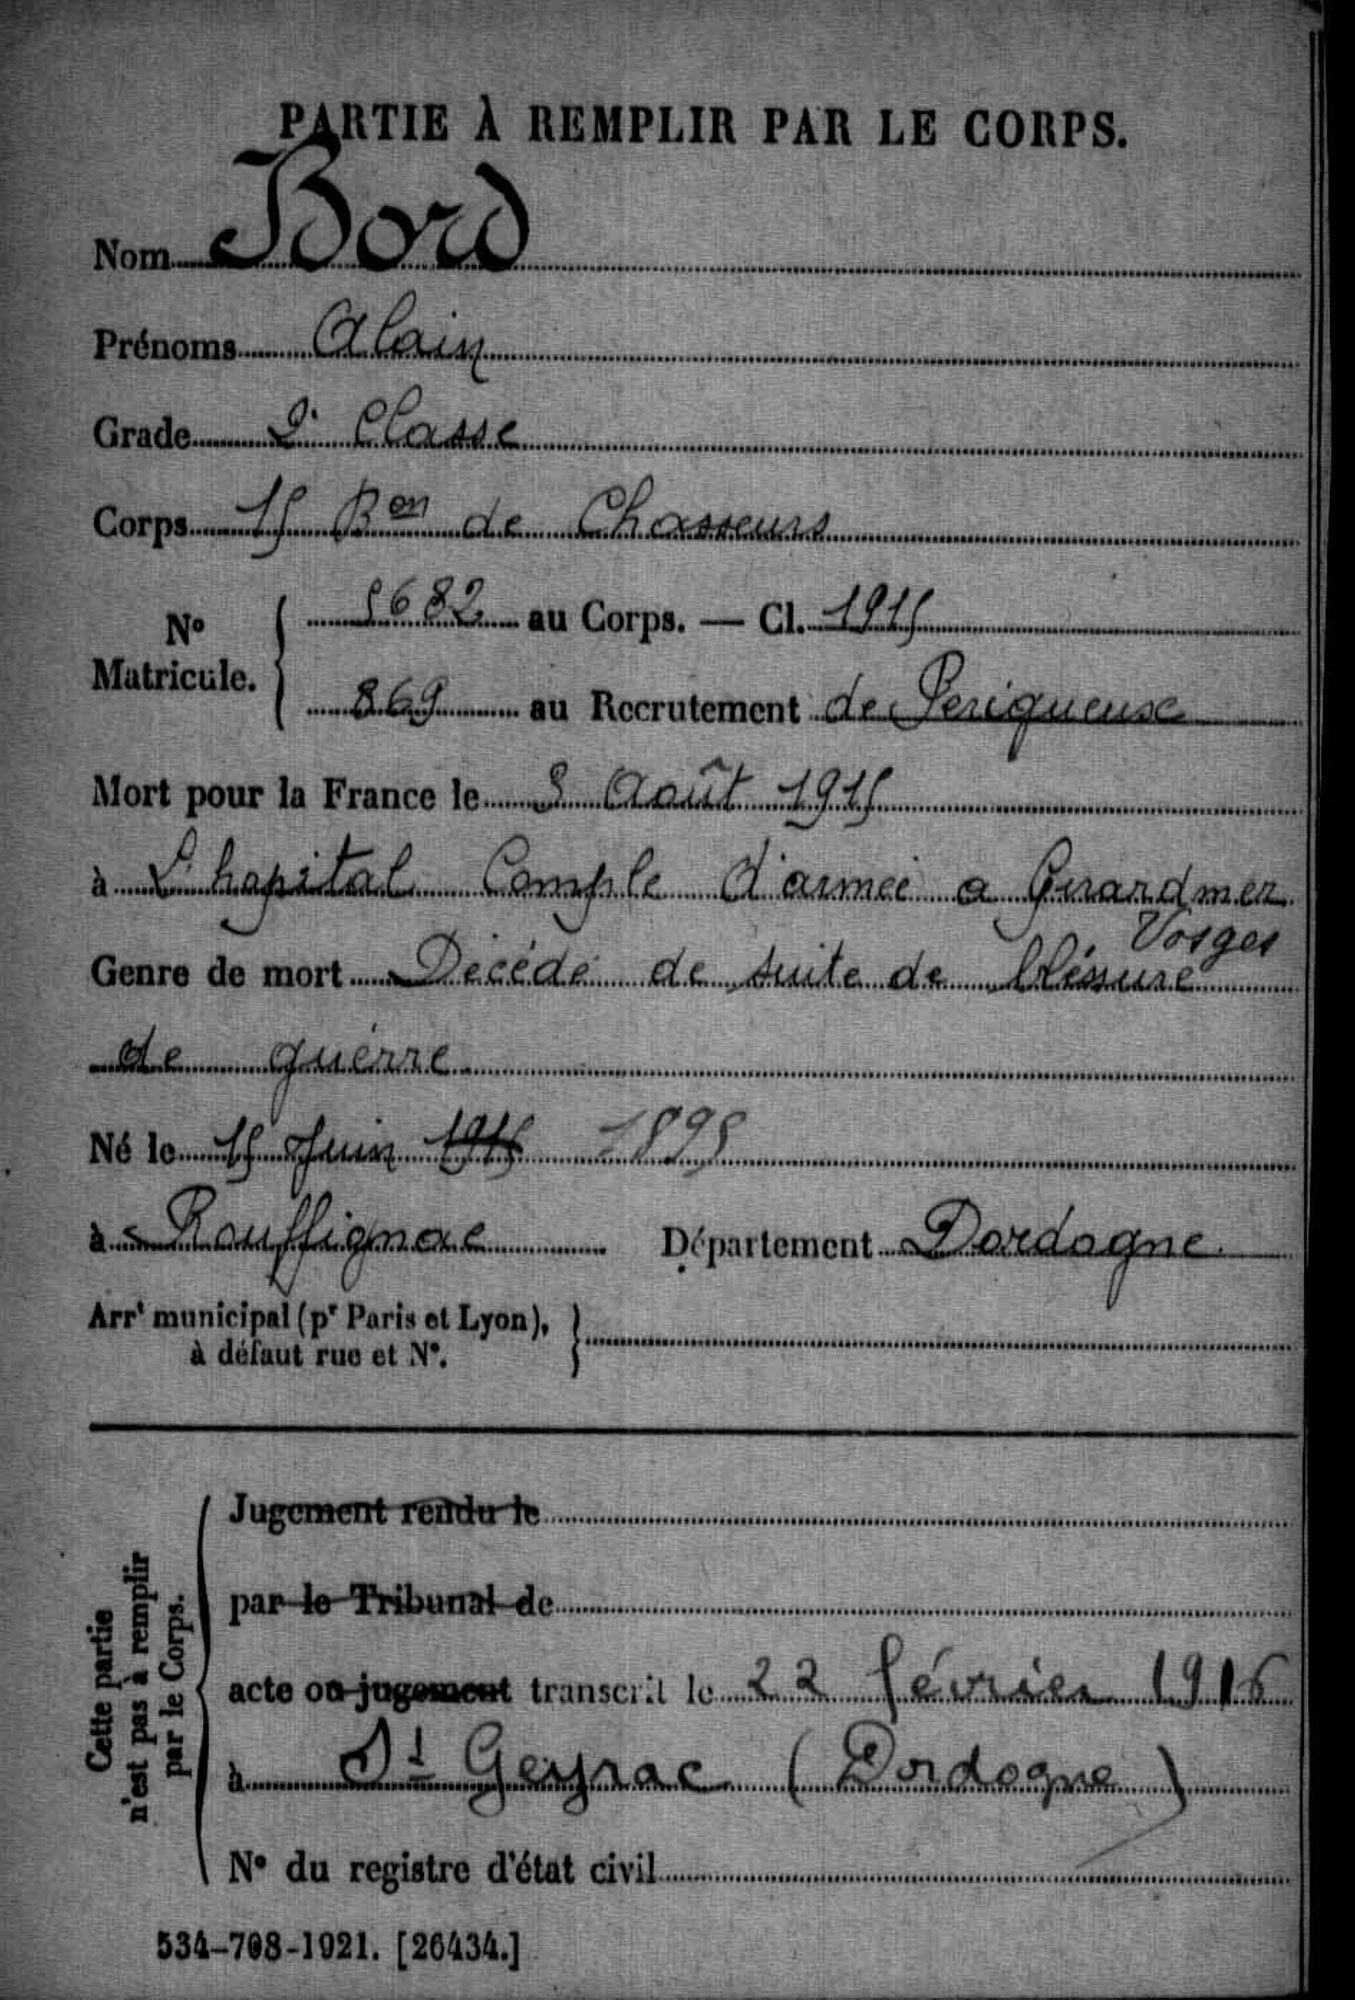 PARTIE À REMPLIR PAR LE CORPS.
Nom Bord
Prénoms Alain
Grade 2e Classe
Corps 15 Bon de Chasseurs
No Matricule. 5682 au Corps. — Cl. 1915
869 au Recrutement de Perigueuse
Mort pour la France le 3 Août 1915
à L'hopital Comple d'armée a Gerardmer
Vosges
Genre de mort Décédé de suite de bléssure
de guérre
Né le 15 Juin 1915 1895
à Rouffignac Département Dordogne
Arrt municipal (pr Paris et Lyon),
à défaut rue et No.
Cette partie
n'est pas à remplir
par le Corps.
Jugement rendu le
par le Tribunal de
acte ou jugement transcrit le 22 février 1916
à St Geyrac (Dordogne)
No du registre d'état civil
534-708-1921. [26434.]